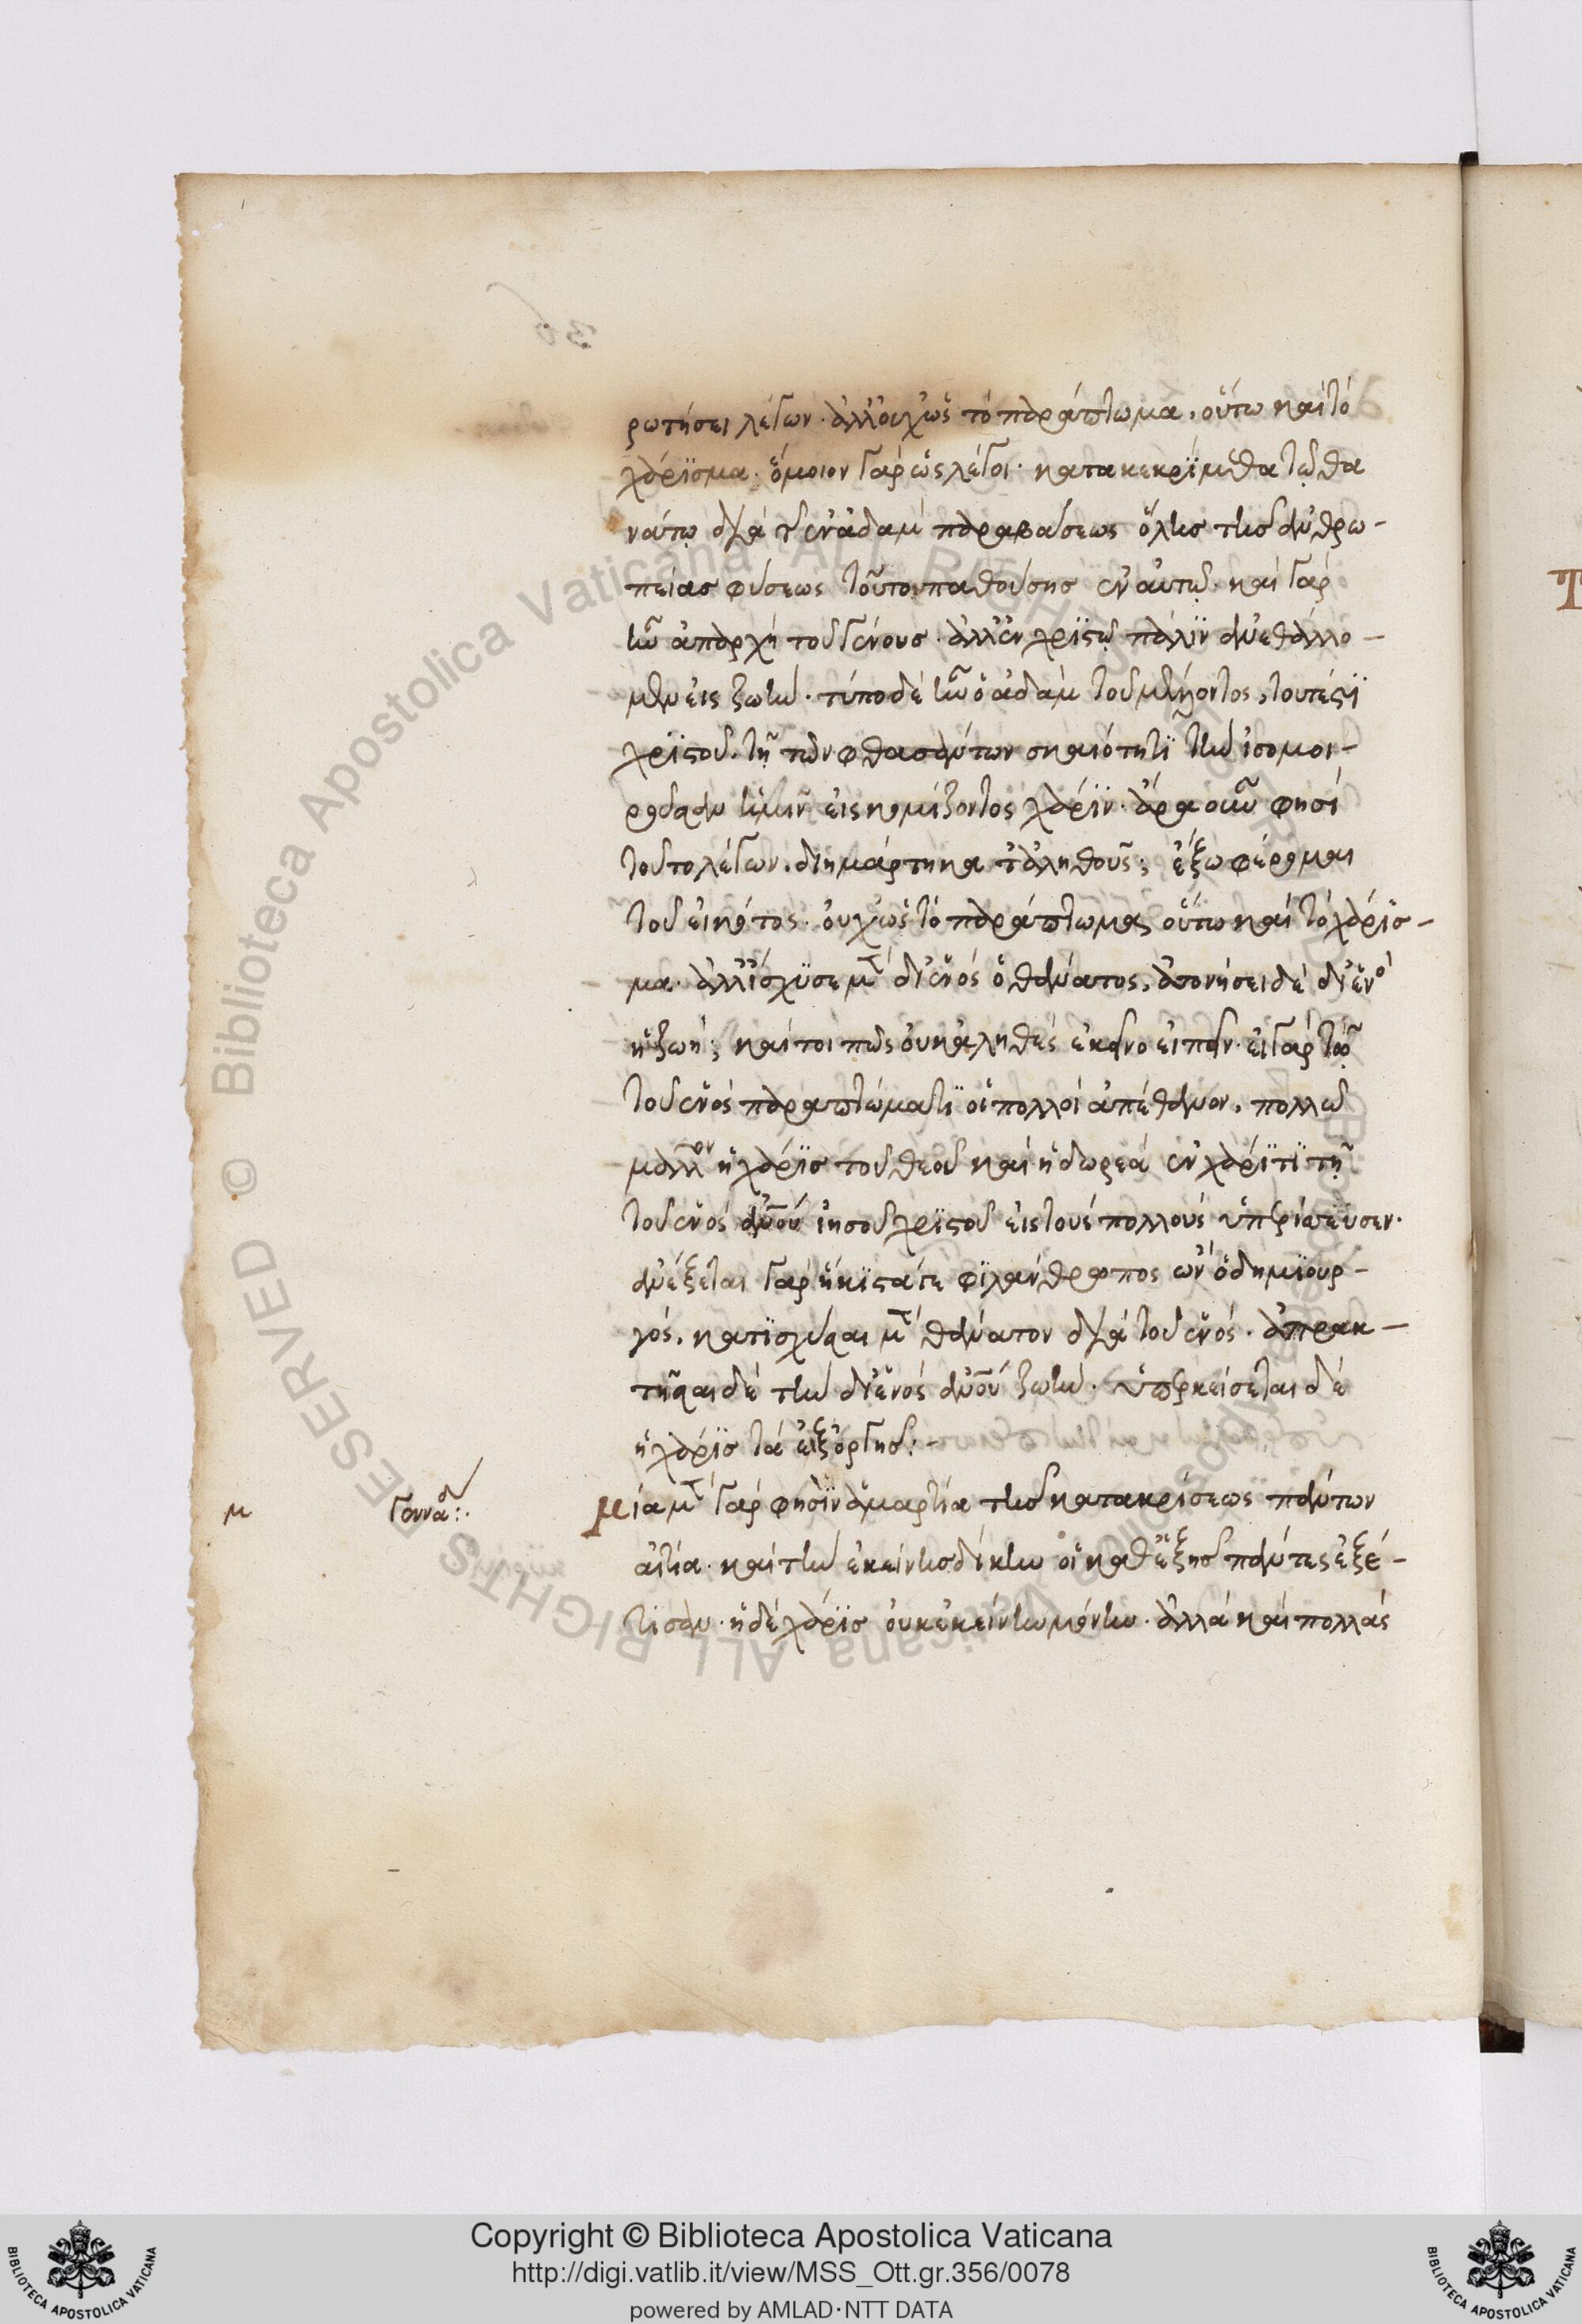 ρωτήσει λέγων· ἀλλ' οὐχ ὡς τὸ παράπτωμα, οὕτω καὶ τὸ
χάρϊσμα· ὅμοιον γὰρ ὡς λέγοι· κατακεκρίμεθα τῷ θα
νάτῳ διὰ τῆς ἐν ἀδὰμ παραβάσεως ὅλης τῆς ἀνθρω-
πείας φύσεως τοῦτο παθούσης ἐν αὐτῷ· καὶ γὰρ
ἦν ἀπαρχὴ τοῦ γένους· ἀλλ' ἐν χρϊστῷ πάλϊν ἀνεθάλλο-
μεν εἰς ζωήν· τύπος δὲ ἦν ὁ ἀδὰμ τοῦ μέλλοντος, τουτέστϊ
χρϊστοῦ. τῇ τῶν φθασάντων σκαιότητϊ τὴν ἰσομοι-
ροῦσαν ἡμῖν εἰσκομίζοντος χάρϊν· ἆρα οὖν φησὶ
τοῦτο λέγων, διημάρτηκα τἀληθοῦς; ἔξω φέρομαι
τοῦ εἰκότος· οὐχ ὡς τὸ παράπτωμα, οὕτω καὶ τὸ χάρϊσ-
μα· ἀλλ' ἴσχϋσε μὲν δι' ἑνὸς ὁ θάνατος, ἀτονήσει δὲ δι' ἑνὸ
ἡ ζωή; καίτοι πῶς οὐκ ἀληθὲς ἐκεῖνο εἰπεῖν· εἰ γὰρ τῷ
τοῦ ἑνὸς παραπτώματϊ οἱ πολλοὶ ἀπέθανον, πολλῷ
μᾶλλον ἡ χάρϊς τοῦ θεοῦ καὶ ἡ δωρεὰ ἐν χάρϊτϊ τῇ
τοῦ ἑνὸς ἀνου ἰησοῦ χρϊστοῦ εἰς τοὺς πολλοὺς ὑπερίσσευσεν·
ἀνέξεται γὰρ ἥκϊστά τε φϊλάνθρωπος ὢν ὁ δημϊουρ-
γός, κατϊσχῦσαι μὲν θάνατον διὰ τοῦ ἑνός· ἀπρακ-
τῆσαι δὲ τὴν δι' ἑνὸς ἀνου ζωήν· ὑπερκείσεται δὲ
ἡ χάρϊς τὰ ἐξ ὀργῆς:-
μ γενναδ:· μία μὲν γὰρ φησϊν ἁμαρτία τῆς κατακρίσεως πάντων
αἰτία· καὶ τὴν ἐκείνης δίκην οἱ καθ' ἑξῆς πάντες ἐξέ-
τισαν· ἡ δὲ χάρϊς οὐκ ἐκείνην μόνην· ἀλλὰ καὶ πολλὰς
Copyright © Biblioteca Apostolica Vaticana
http://digi.vatlib.it/view/MSS_Ott.gr.356/0078
powered by AMLAD·NTT DATA
BIBLIOTECA APOSTOLICA VATICANA
BIBLIOTECA APOSTOLICA VATICANA
© Biblioteca Apostolica Vaticana ALL RIGHTS RESERVED